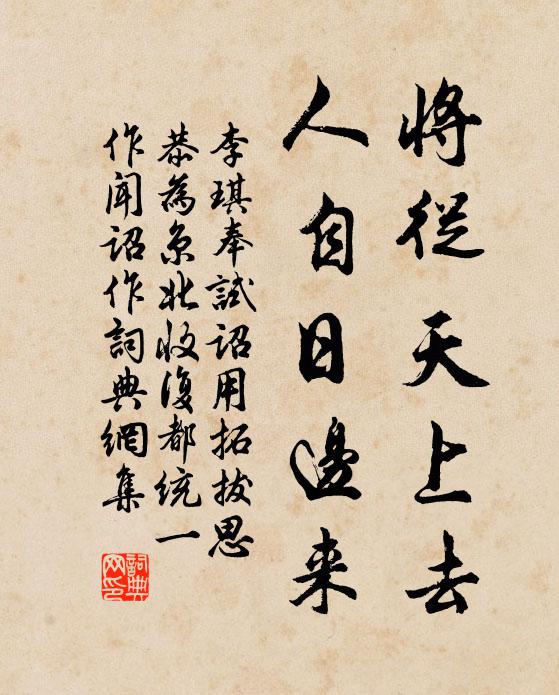 將從天上去
人自日邊來
李琪奉試詔用拓拔思
恭為京北收復都統一
作聞詔作詞典網集
詞典網印